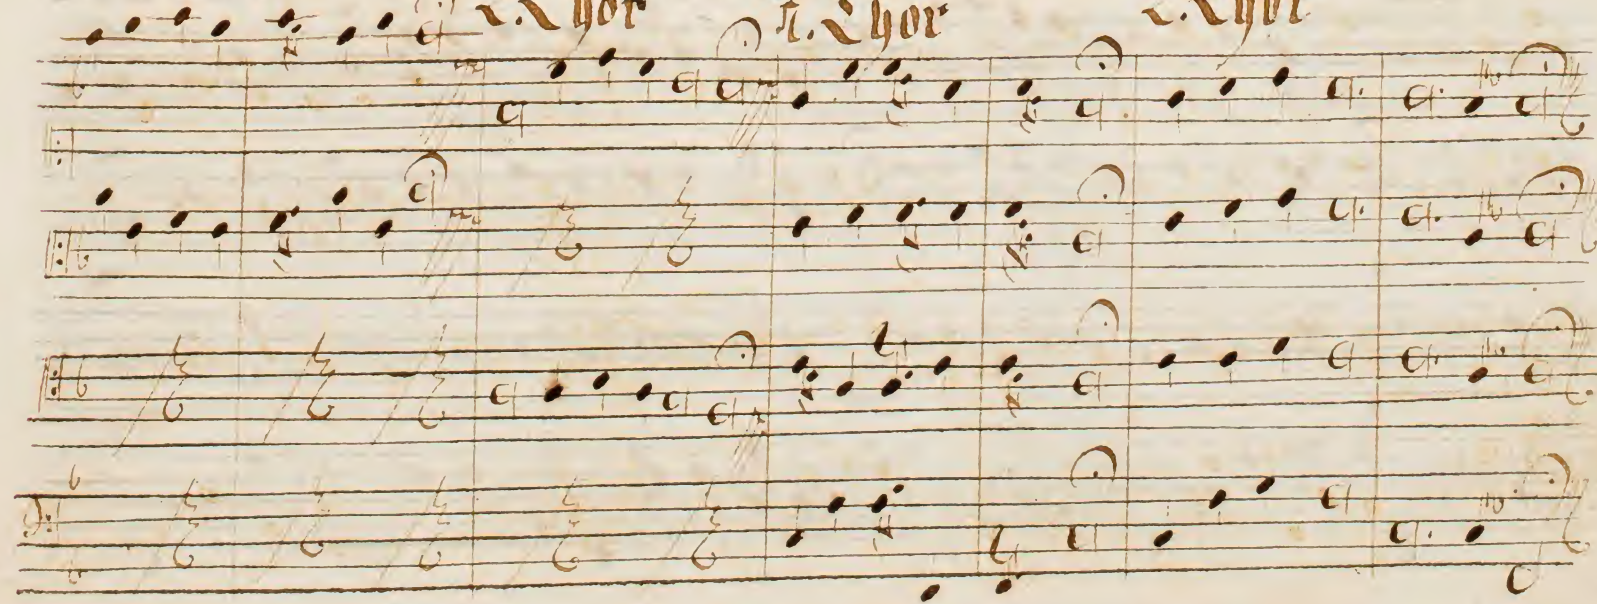 2. Chor 1. Chor 2. Chor